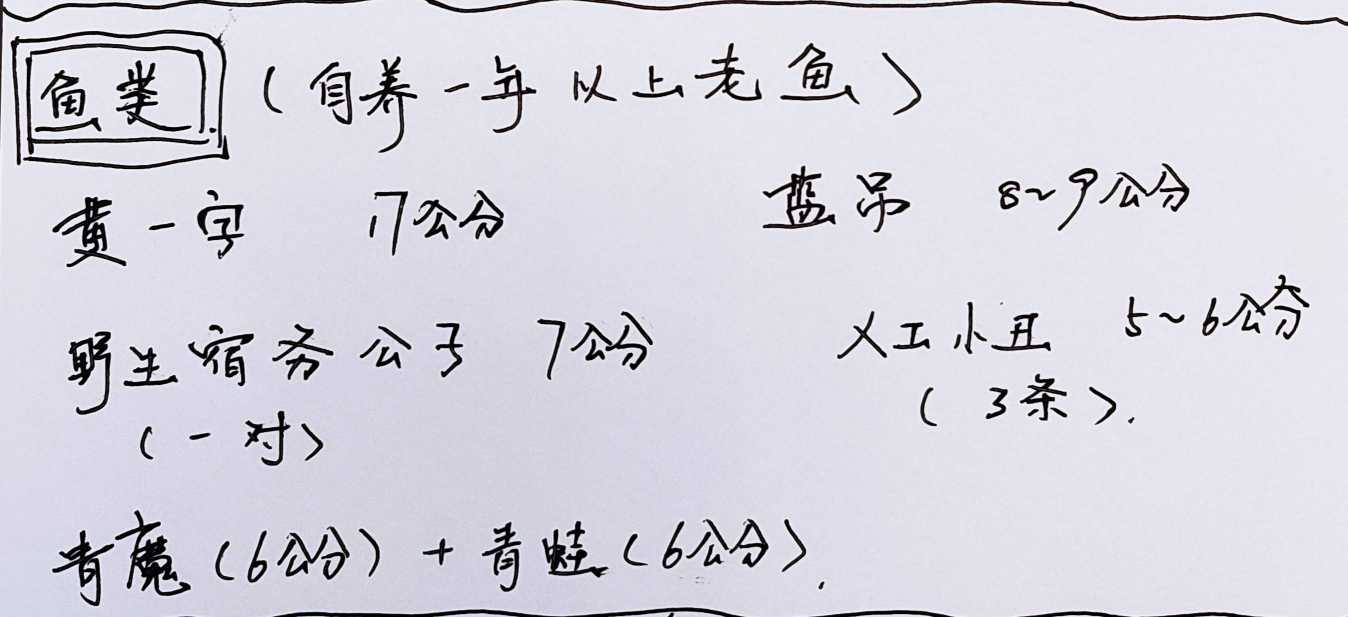 鱼类（自养一年以上老鱼）
黄一字 17公分 蓝吊 8~9公分
野生宿务公子 7公分 人工小丑 5~6公分
（一对） （3条）.
青魔（6公分）+青蛙（6公分）.